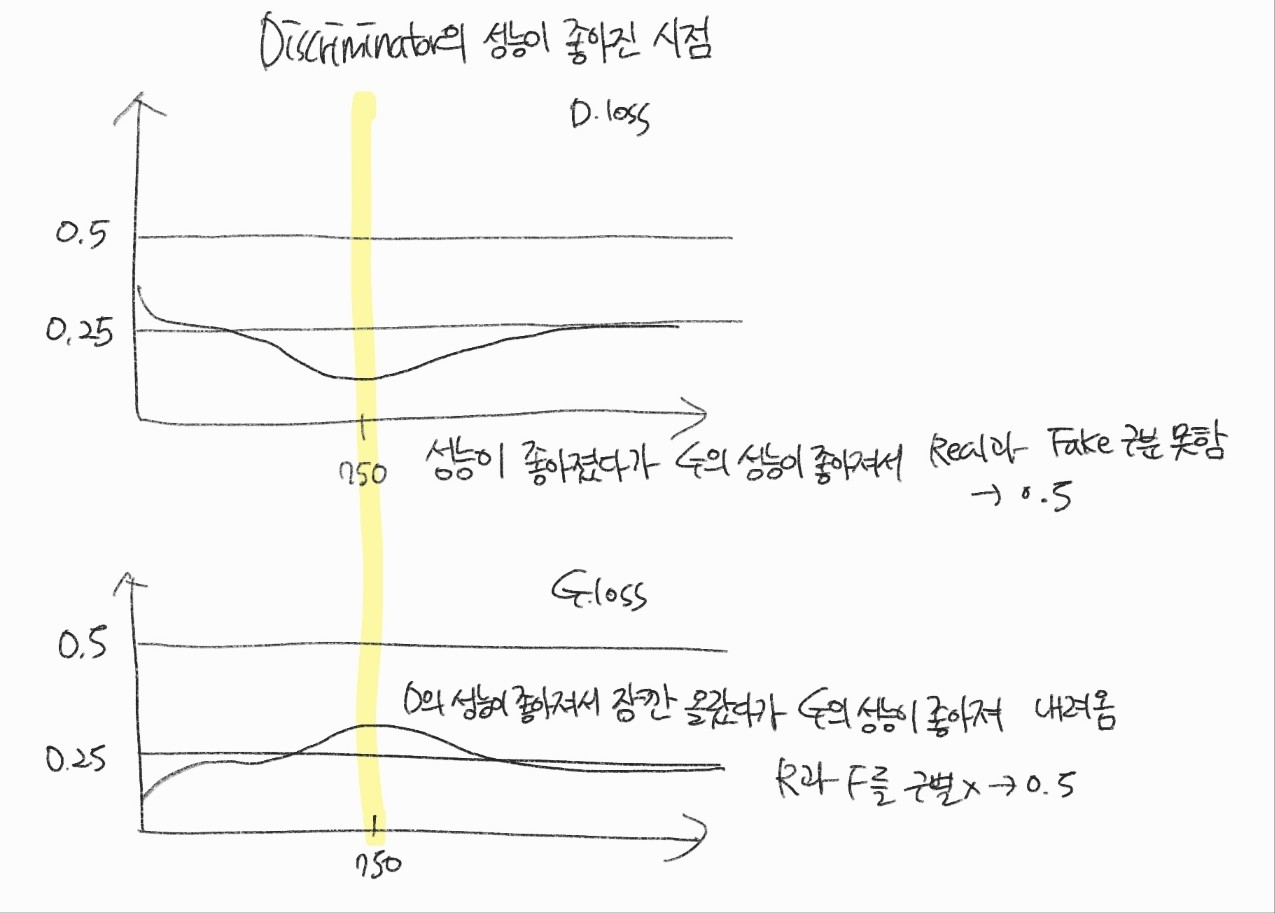 Discriminator의 성능이 좋아진 시점
D.loss
0.5
0.25
750
성능이 좋아졌다가 G의 성능이 좋아져서 Real과 Fake 구분 못함
→ 0.5
G.loss
0.5
D의 성능이 좋아져서 잠깐 올랐다가 G의 성능이 좋아져 내려옴
0.25
R과 F를 구별 x → 0.5
750